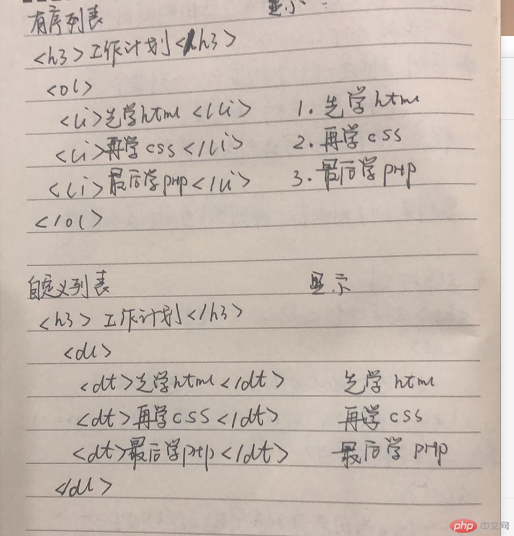 有序列表 显示
<h3>工作计划</h3>
<ol>
<li>先学html</li> 1. 先学html
<li>再学css</li> 2. 再学css
<li>最后学PHP</li> 3. 最后学PHP
</ol>
自定义列表 显示
<h3>工作计划</h3>
<dl>
<dt>先学html</dt> 先学html
<dt>再学CSS</dt> 再学CSS
<dt>最后学php</dt> 最后学PHP
</dl>
php 中文网